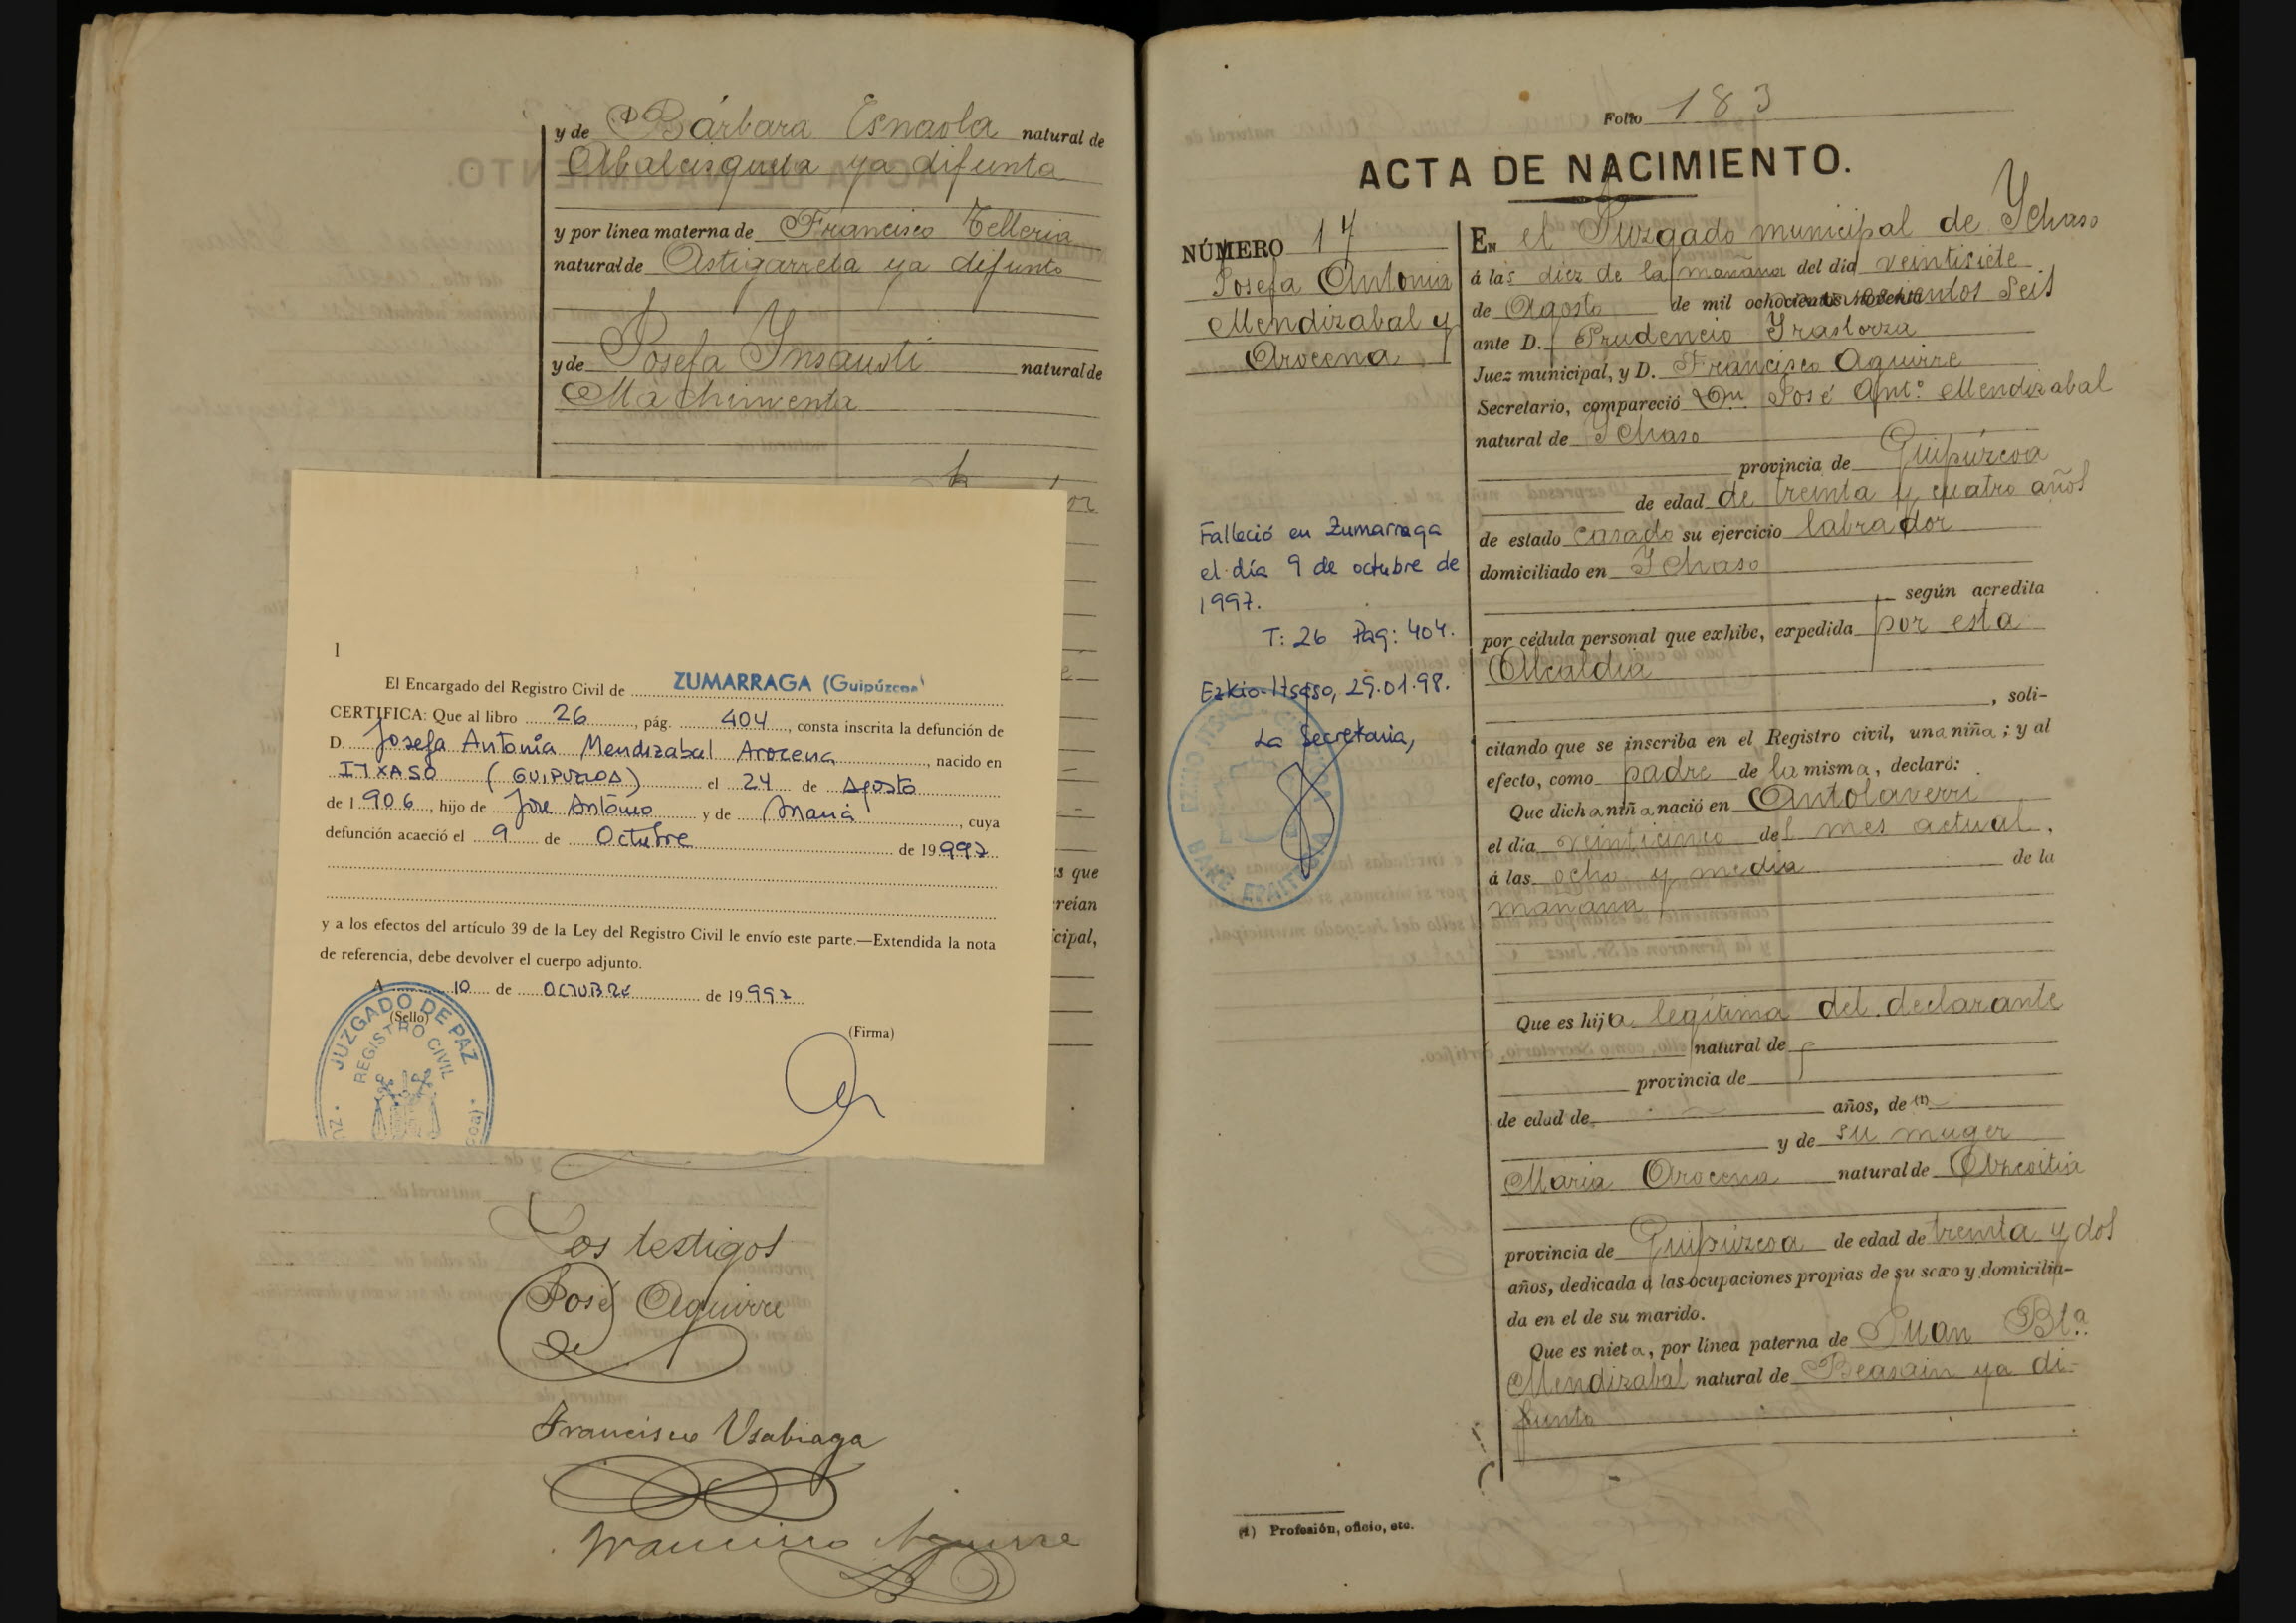 y de Dª Bárbara Esnaola natural de
Abalcisqueta ya difunta
y por línea materna de Francisco Telleria
natural de Astigarreta ya difunto
y de Josefa Insausti natural de
Machinventa
I
El Encargado del Registro Civil de ZUMARRAGA (Guipúzcoa)
CERTIFICA: Que al libro 26, pág. 404, consta inscrita la defunción de
D. Josefa Antonia Mendizabal Arocena, nacido en
ITXASO (GUIPUZCOA) el 24 de Agosto
de 1906, hijo de Jose Antonio y de Maria, cuya
defunción acaeció el 9 de Octubre de 19997
y a los efectos del artículo 39 de la Ley del Registro Civil le envío este parte.—Extendida la nota
de referencia, debe devolver el cuerpo adjunto.
A 10 de OCTUBRE de 19997
(Sello)
(Firma)
JUZGADO DE PAZ
REGISTRO CIVIL
s que
reían
cipal,
Los testigos
José Aguirre
Francisco Usabiaga
Francisco Aguirre
Folio 183
ACTA DE NACIMIENTO.
NÚMERO 17
Josefa Antonia
Mendizabal y
Arocena
Falleció en Zumarraga
el día 9 de octubre de
1997.
T: 26 Pag: 404.
Ezkio-Itsaso, 29.01.98.
La Secretaria,
BAKE EPAITEGIA
EN el Juzgado municipal de Ichaso
á las diez de la mañana del día veintisiete
de Agosto de mil novecientos seis
ante D. Prudencio Irastorza
Juez municipal, y D. Francisco Aguirre
Secretario, compareció Dn. José Antº. Mendizabal
natural de Ichaso
provincia de Guipúzcoa
de edad de treinta y cuatro años
de estado casado su ejercicio labrador
domiciliado en Ichaso
según acredita
por cédula personal que exhibe, expedida por esta
Alcaldia
, soli-
citando que se inscriba en el Registro civil, una niña; y al
efecto, como padre de la misma, declaró:
Que dicha niña nació en Antolaverri
el día veinticinco del mes actual,
á las ocho y media de la
mañana
Que es hija legítima del declarante
natural de
provincia de
de edad de años, de (1)
y de su muger
Maria Arocena natural de Azcoitia
provincia de Guipúzcoa de edad de treinta y dos
años, dedicada á las ocupaciones propias de su sexo y domicilia-
da en el de su marido.
Que es nieta, por línea paterna de Juan Bta.
Mendizabal natural de Beasain ya di-
funto
(1) Profesión, oficio, etc.